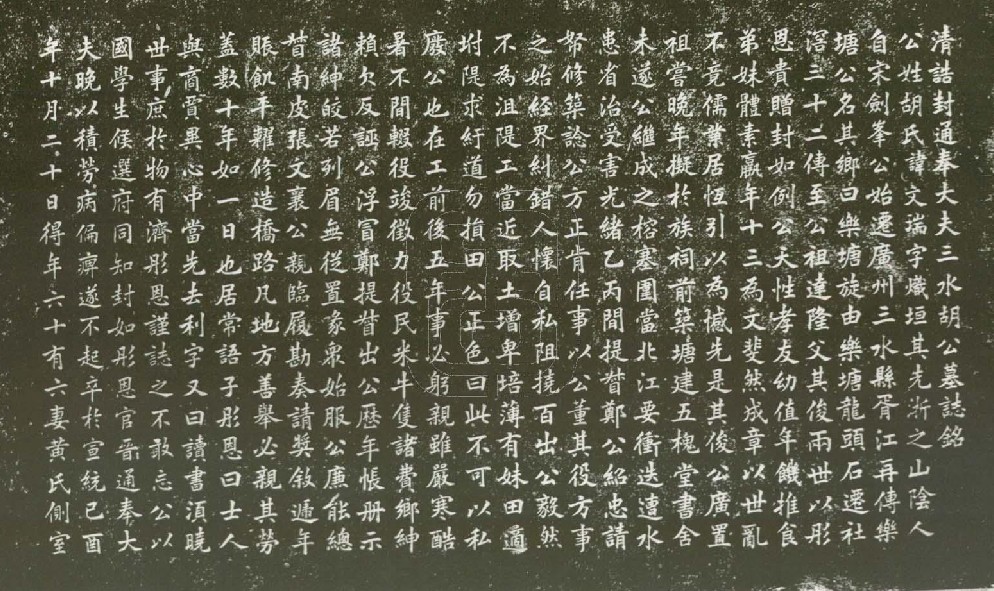 清誥封通奉大夫三水胡公墓誌銘
公姓胡氏諱文瑞字熾垣其先浙之山陰人
自宋劍峯公始遷廣州三水縣胥江再傳樂
塘公名其鄉曰樂塘旋由樂塘龍頭石遷社
滘三十二傳至公祖達隆父其俊兩世以彤
恩貴贈封如例公天性孝友幼值年饑推食
弟妹體素羸年十三為文斐然成章以世亂
不竟儒業居恆引以為憾先是其俊公廣置
祖嘗晚年擬於族祠前築塘建五槐堂書舍
未遂公繼成之榕塞圍當北江要衝迭遭水
患省治受害光緒乙丙間提督鄭公紹忠請
帑修築諗公方正肯任事以公董其役方事
之始經界糾錯人懷自私阻撓百出公毅然
不為沮隄工當近取土增卑培薄有妹田適
坿隄求紆道勿損田公正色曰此不可以私
廢公也在工前後五年事必躬親雖嚴寒酷
暑不間輟役竣徵力役民米牛隻諸費鄉紳
賴欠反誣公浮冒鄭提督出公歷年帳册示
諸紳皎若列眉無從置喙衆始服公廉能總
督南皮張文襄公親臨履勘奏請奬敘遞年
賬飢平糶修造橋路凡地方善舉必親其勞
蓋數十年如一日也居常語子彤恩曰士人
與商賈異心中當先去利字又曰讀書須曉
世事庶於物有濟彤恩謹誌之不敢忘公以
國學生候選府同知封如彤恩官晉通奉大
夫晚以積勞病偏痹遂不起卒於宣統己酉
年十月二十日得年六十有六妻黃氏側室